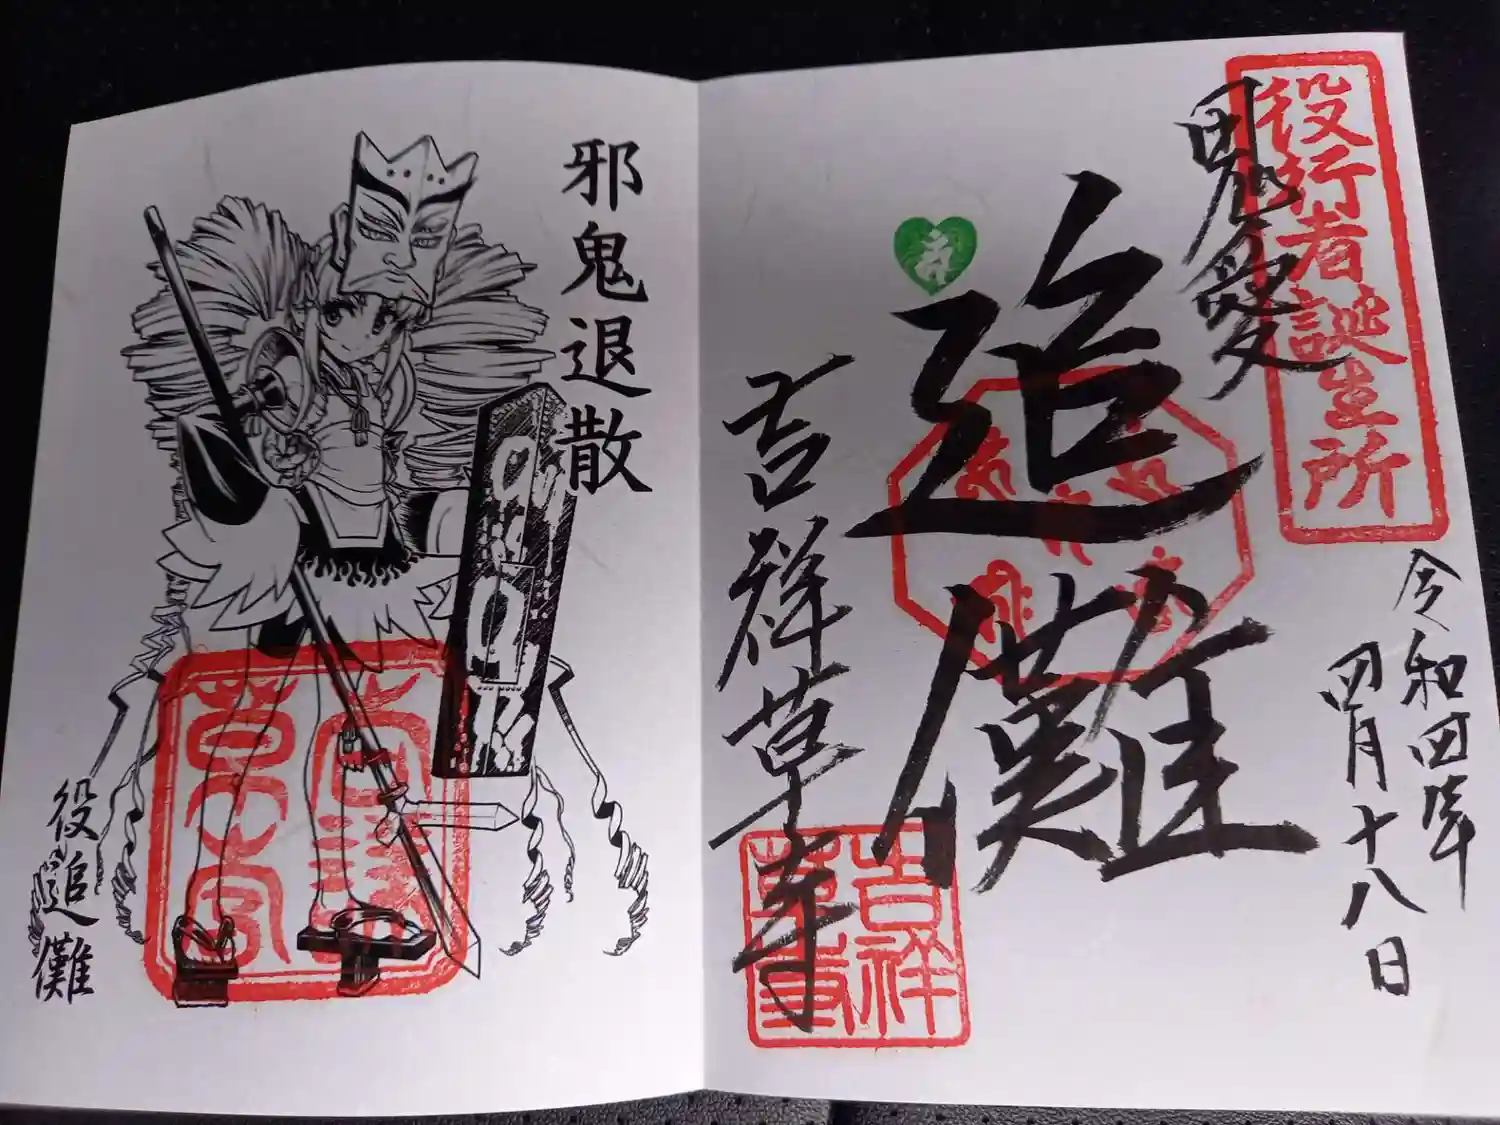 役行者誕生所
鬼愛
追儺
吉祥草寺
吉祥
草寺
令和四年
四月十八日
邪鬼退散
役追儺